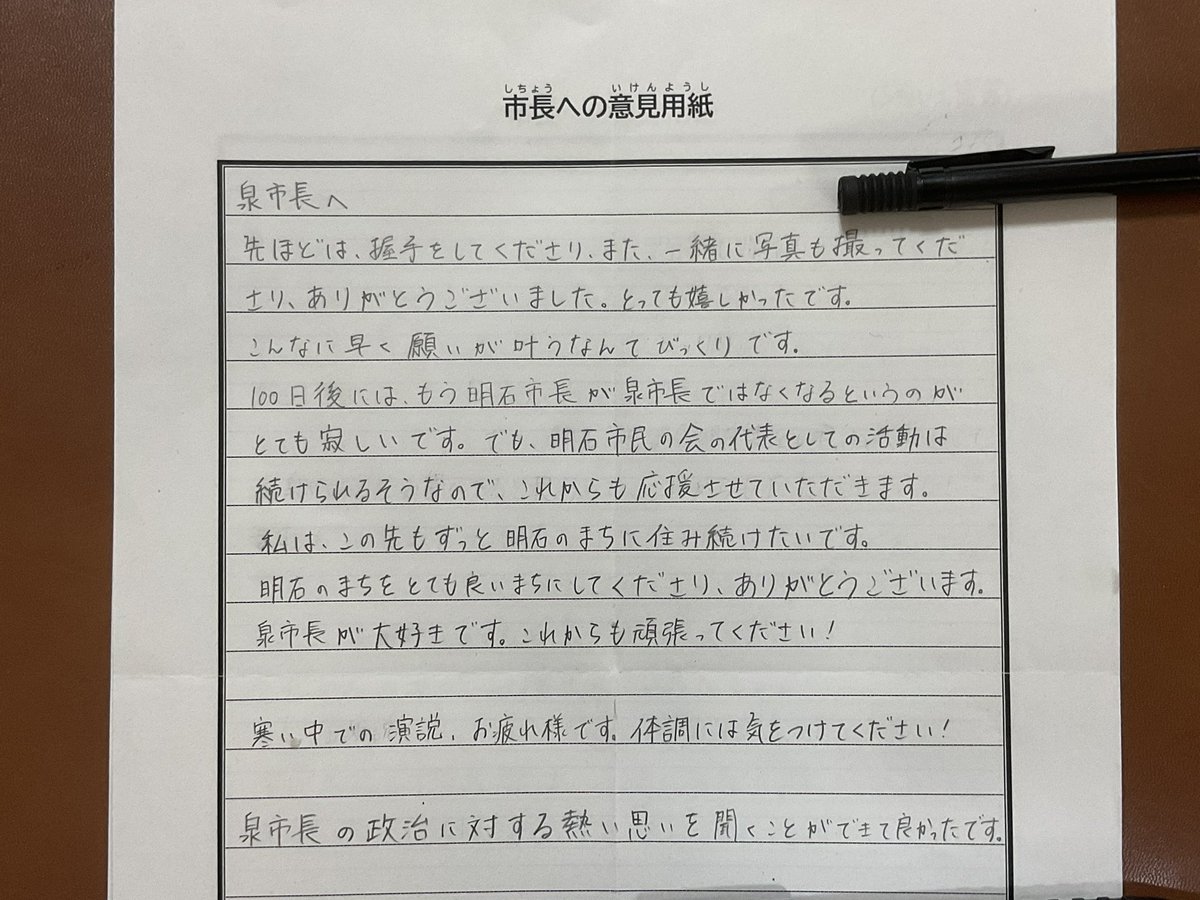 しちょう いけんようし
市長への意見用紙
泉市長へ
先ほどは、握手をしてくださり、また、一緒に写真も撮ってくだ
さり、ありがとうございました。とっても嬉しかったです。
こんなに早く願いが叶うなんてびっくりです。
100日後には、もう明石市長が泉市長ではなくなるというのが
とても寂しいです。でも、明石市民の会の代表としての活動は
続けられるそうなので、これからも応援させていただきます。
私は、この先もずっと明石のまちに住み続けたいです。
明石のまちをとても良いまちにしてくださり、ありがとうございます。
泉市長が大好きです。これからも頑張ってください!
寒い中での演説、お疲れ様です。体調には気をつけてください!
泉市長の政治に対する熱い思いを聞くことができて良かったです。